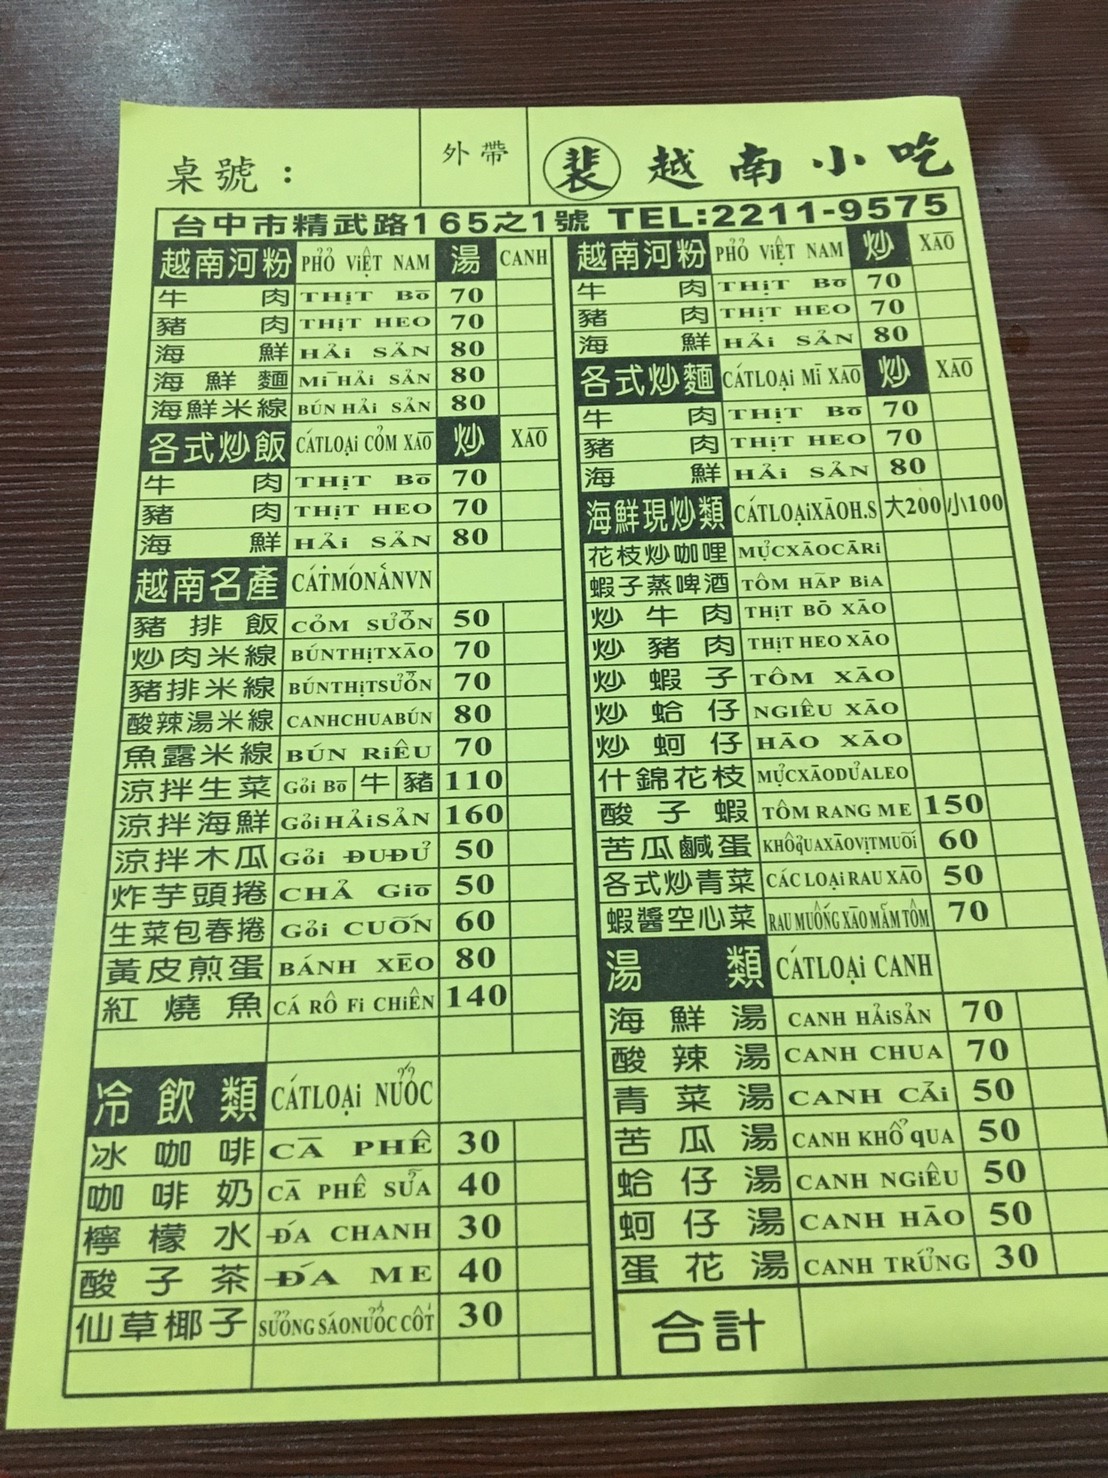 桌號：
外帶
裴 越南小吃
台中市精武路165之1號 TEL:2211-9575
越南河粉 PHỎ ViỆT NAM 湯 CANH
牛肉 THịT Bō 70
豬肉 THịT HEO 70
海鮮 HẢi SẢN 80
海鮮麵 Mī HẢi SẢN 80
海鮮米線 BÚN HẢi SẢN 80
各式炒飯 CÁTLOẠi CỎM XĀO 炒 XĀO
牛肉 THịT Bō 70
豬肉 THịT HEO 70
海鮮 HẢi SẢN 80
越南名產 CÁTMÓNĂNVN
豬排飯 CỎM SƯỜN 50
炒肉米線 BÚNTHịTXĀO 70
豬排米線 BÚNTHịTSƯỜN 70
酸辣湯米線 CANHCHUABÚN 80
魚露米線 BÚN RiÊU 70
涼拌生菜 Gỏi Bō 牛 豬 110
涼拌海鮮 GỏiHẢiSẢN 160
涼拌木瓜 Gỏi ĐUĐỦ 50
炸芋頭捲 CHẢ Giō 50
生菜包春捲 Gỏi CUỐN 60
黃皮煎蛋 BÁNH XĒO 80
紅燒魚 CÁ RÔ Fi CHiÊN 140
冷飲類 CÁTLOẠi NƯỚC
冰咖啡 CĀ PHÊ 30
咖啡奶 CĀ PHÊ SỮA 40
檸檬水 ĐÁ CHANH 30
酸子茶 ĐÁ ME 40
仙草椰子 SƯỎNG SÁONƯỚC CỐT 30
越南河粉 PHỎ ViỆT NAM 炒 XĀO
牛肉 THịT Bō 70
豬肉 THịT HEO 70
海鮮 HẢi SẢN 80
各式炒麵 CÁTLOẠi MĪ XĀO 炒 XĀO
牛肉 THịT Bō 70
豬肉 THịT HEO 70
海鮮 HẢi SẢN 80
海鮮現炒類 CÁTLOẠiXĀOH.S 大200 小100
花枝炒咖哩 MỰCXĀOCĀRi
蝦子蒸啤酒 TÔM HĀP BiA
炒牛肉 THịT BŌ XĀO
炒豬肉 THịT HEO XĀO
炒蝦子 TÔM XĀO
炒蛤仔 NGIÊU XĀO
炒蚵仔 HĀO XĀO
什錦花枝 MỰCXĀODƯALEO
酸子蝦 TÔM RANG ME 150
苦瓜鹹蛋 KHỔqUAXĀOVịTMUỐi 60
各式炒青菜 CÁC LOẠi RAU XĀO 50
蝦醬空心菜 RAU MUỐNG XĀO MẮM TÔM 70
湯類 CÁTLOẠi CANH
海鮮湯 CANH HẢiSẢN 70
酸辣湯 CANH CHUA 70
青菜湯 CANH CẢi 50
苦瓜湯 CANH KHỔ qUA 50
蛤仔湯 CANH NGiÊU 50
蚵仔湯 CANH HĀO 50
蛋花湯 CANH TRỨNG 30
合計